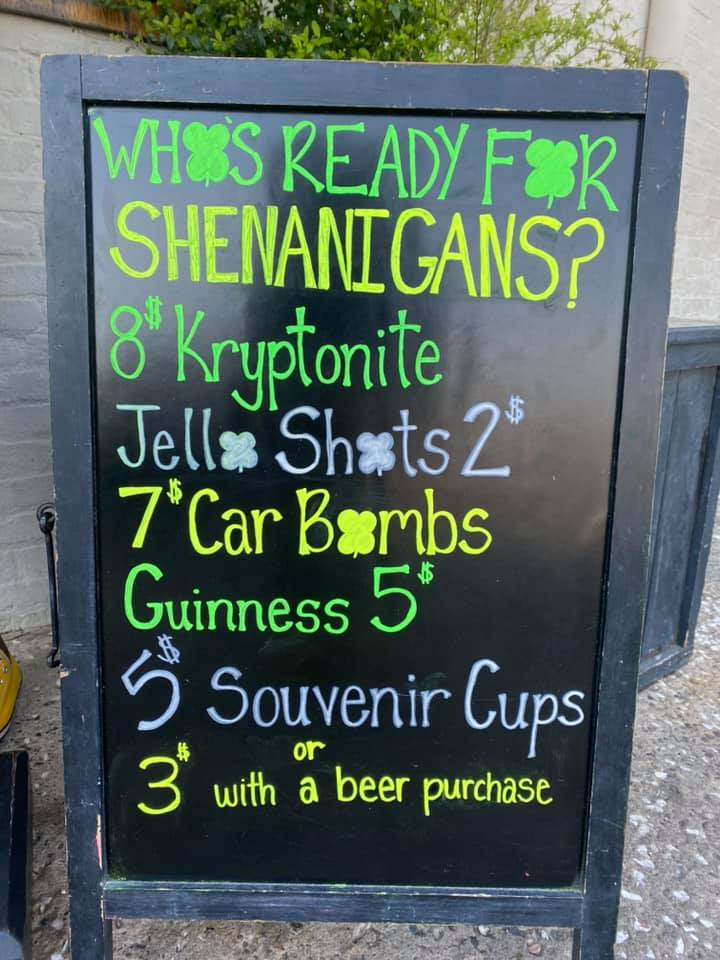 WHO'S READY FOR
SHENANIGANS?
8$ Kryptonite
Jello Shots 2$
7$ Car Bombs
Guinness 5$
5$ Souvenir Cups
or
3$ with a beer purchase